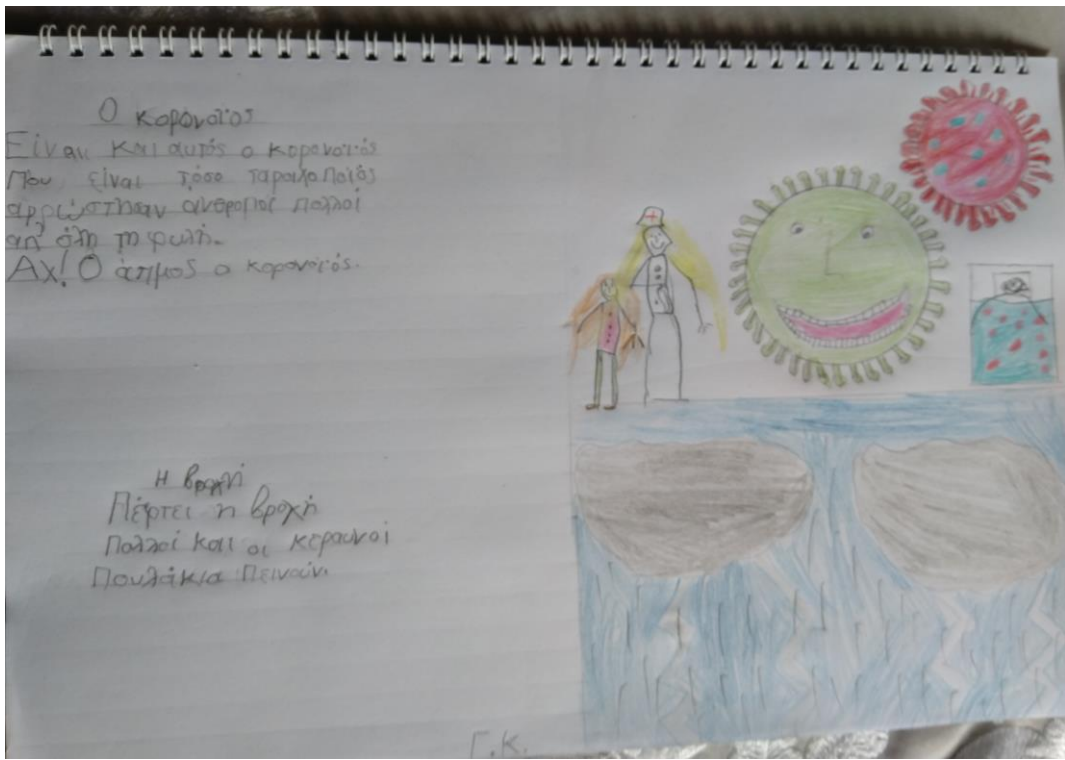 Ο κορονοϊός
Είναι και αυτός ο κορονοϊός
που είναι τόσο ταραχοποιός
αρρώστησαν ανθρωποι πολλοί
απ' όλη τη φυλή.
Αχ! Ο άτιμος ο κορονοϊός.
Η βροχή
Πέφτει η βροχή
Πολλοί και οι κεραυνοί
Πουλάκια πεινούν.
Γ.Κ.